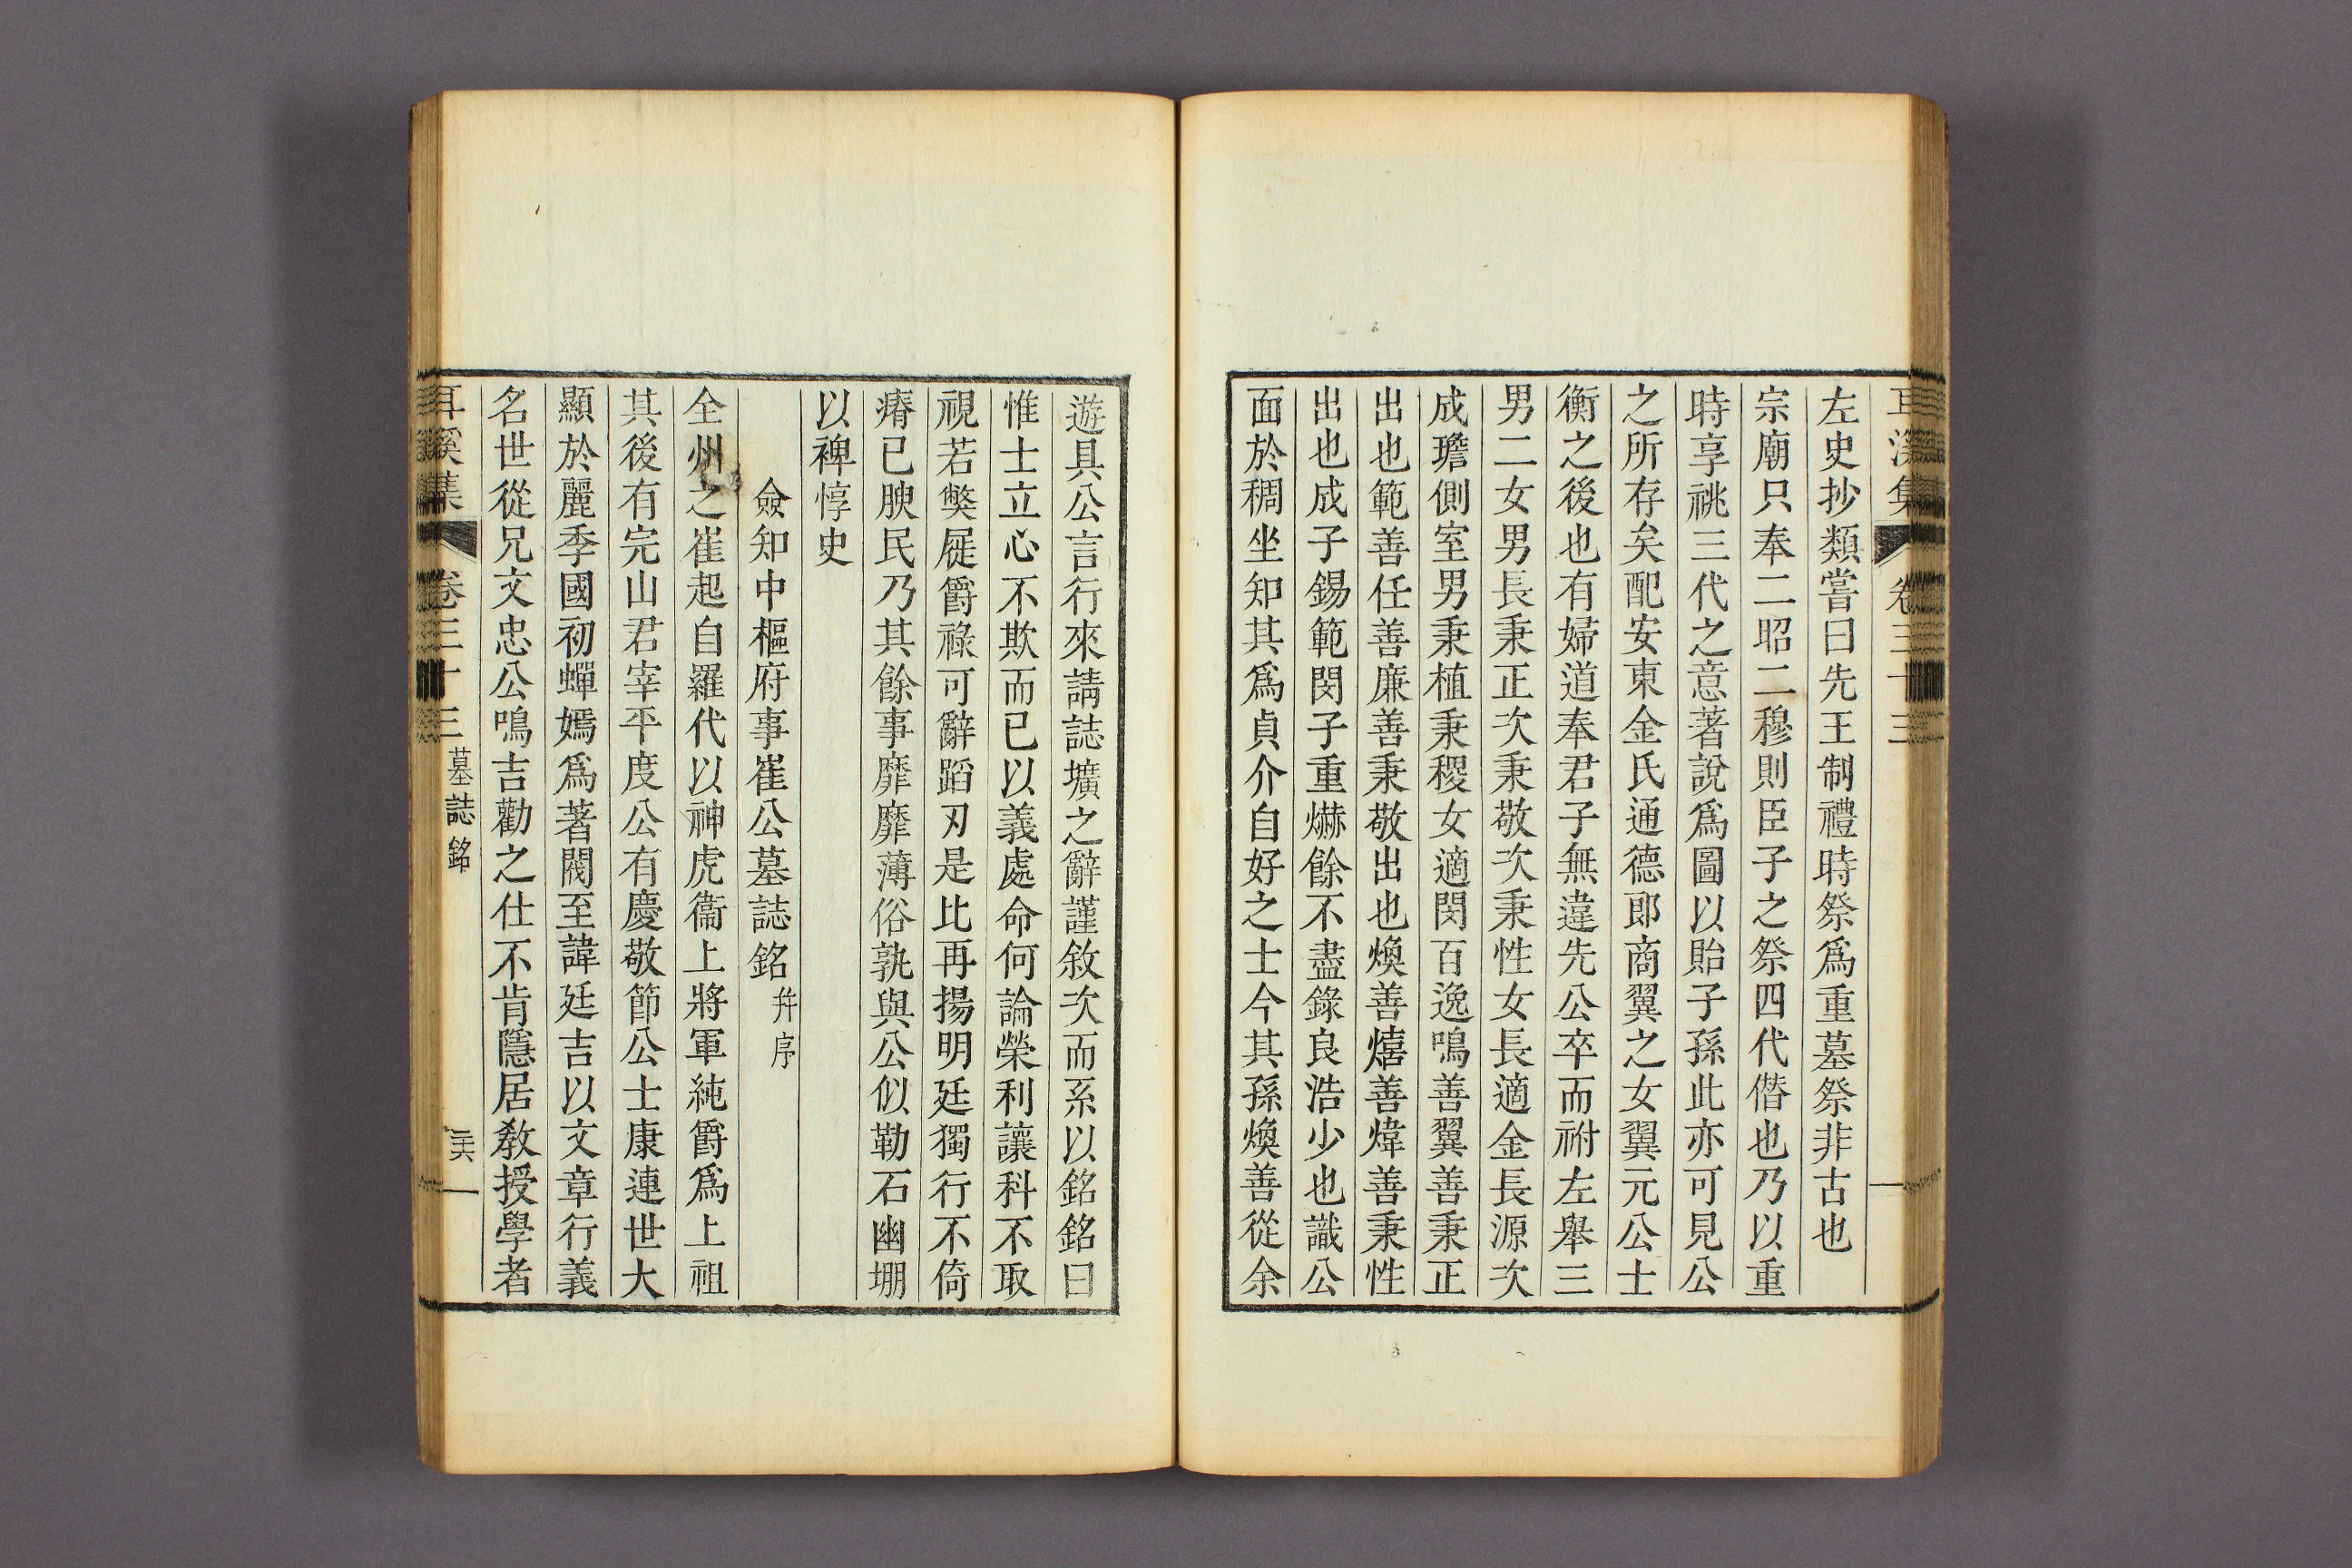 耳溪集 卷三十三
左史抄類嘗曰先王制禮時祭爲重墓祭非古也
宗廟只奉二昭二穆則臣子之祭四代僭也乃以重
時享祧三代之意著說爲圖以貽子孫此亦可見公
之所存矣配安東金氏通德郎商翼之女翼元公士
衡之後也有婦道奉君子無違先公卒而祔左舉三
男二女男長秉正次秉敬次秉性女長適金長源次
成瓋側室男秉植秉稷女適閔百逸鳴善翼善秉正
出也範善任善廉善秉敬出也煥善熺善煒善秉性
出也成子錫範閔子重爀餘不盡錄良浩少也識公
面於稠坐知其爲貞介自好之士今其孫煥善從余
遊具公言行來請誌壙之辭謹敘次而系以銘銘曰
惟士立心不欺而已以義處命何論榮利讓科不取
視若獘屣爵祿可辭蹈刃是比再揚明廷獨行不倚
瘠已腴民乃其餘事靡靡薄俗孰與公似勒石幽堋
以裨惇史
僉知中樞府事崔公墓誌銘 幷序
全州之崔起自羅代以神虎衞上將軍純爵爲上祖
其後有完山君宰平度公有慶敬節公士康連世大
顯於麗季國初蟬嫣爲著閥至諱廷吉以文章行義
名世從兄文忠公鳴吉勸之仕不肯隱居敎授學者
耳溪集 卷三十三 墓誌銘 三六